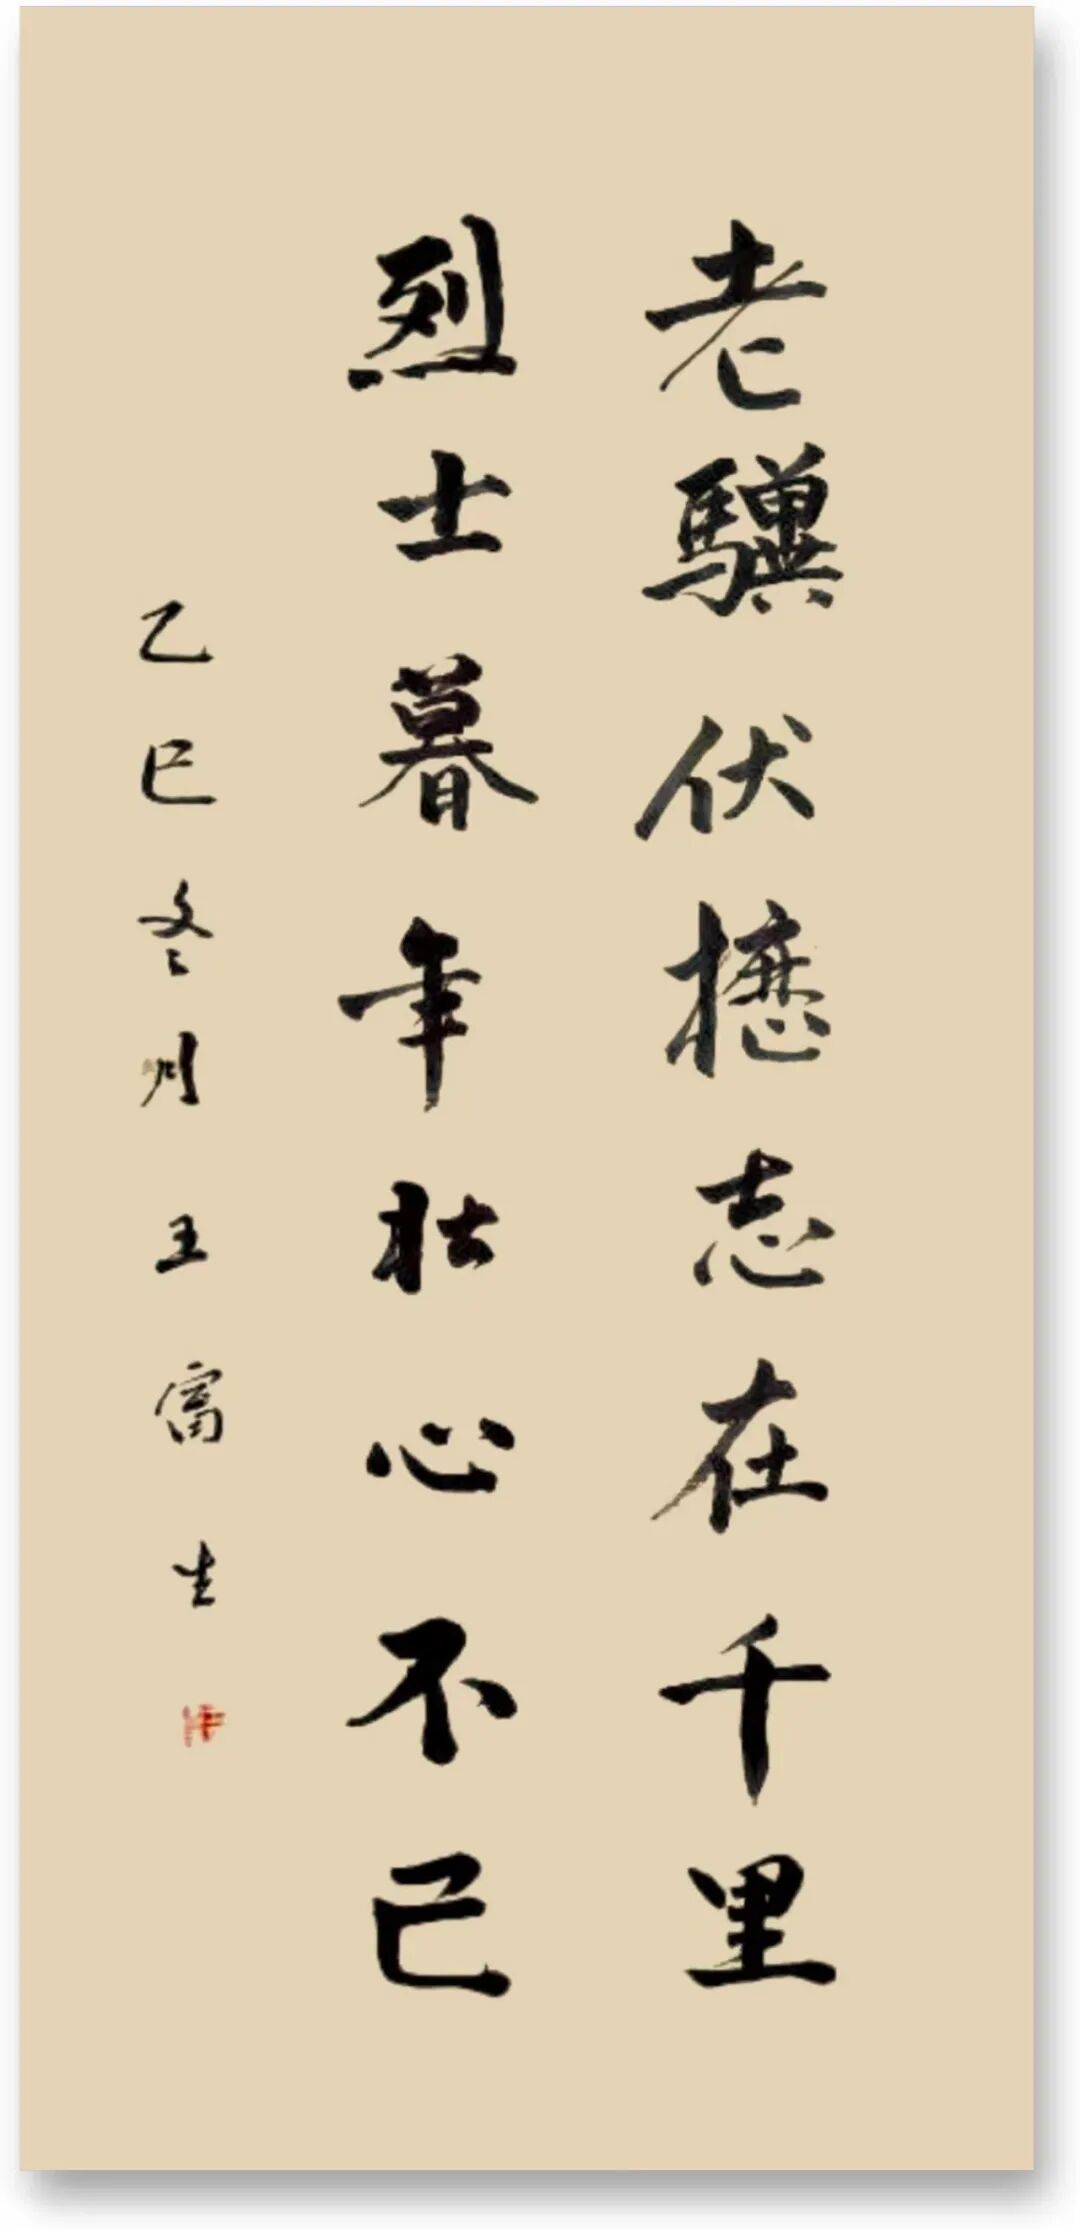 老驥伏櫪志在千里
烈士暮年壯心不已
乙巳冬月王富生